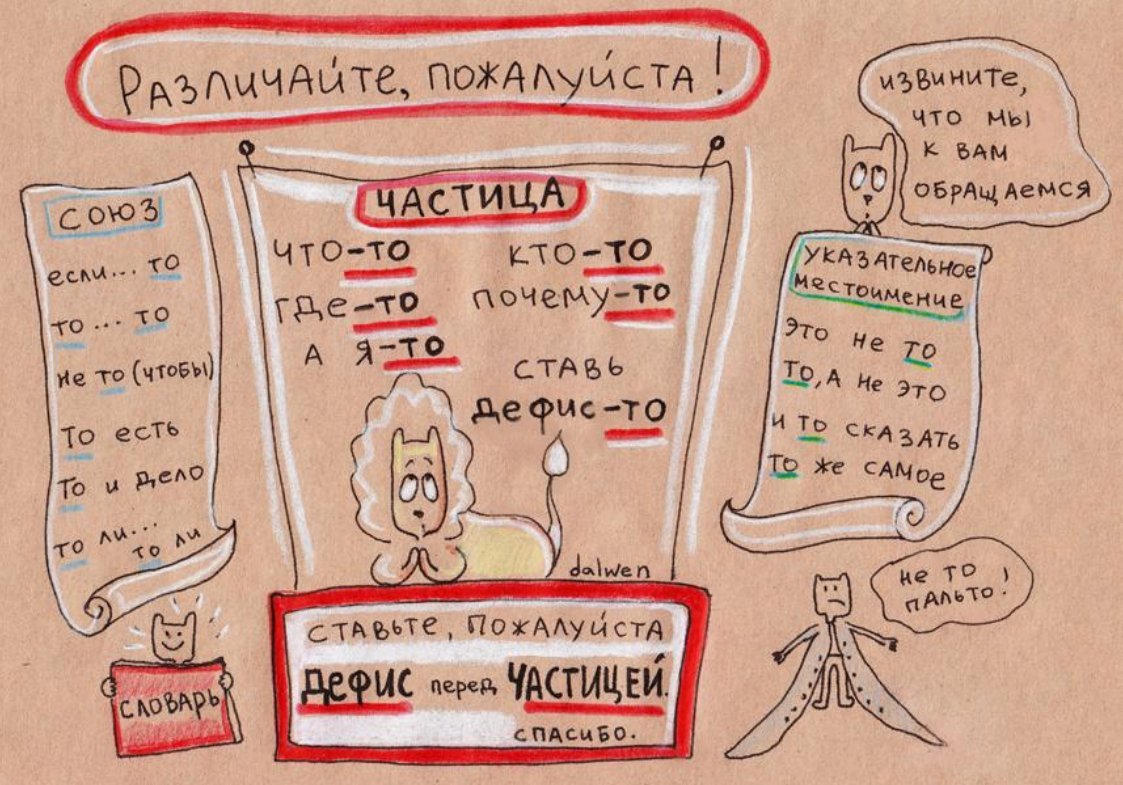 Различайте, пожалуйста!
извините,
что мы
к вам
обращаемся
союз
если... то
то ... то
не то (чтобы)
то есть
то и дело
то ли...
то ли
словарь
частица
что-то
кто-то
где-то
почему-то
а я-то
ставь
дефис-то
dalwen
ставьте, пожалуйста
дефис перед частицей.
спасибо.
указательное
местоимение
это не то
то, а не это
и то сказать
то же самое
не то
пальто!